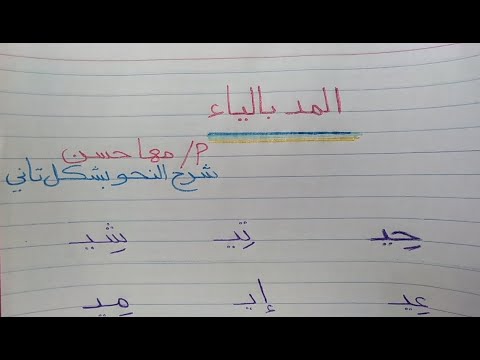 المد بالياء
م/ مها حسن
شرح النحو بشكل تاني
حِيـ تِيـ شِيـ
عِيـ إيـ مِيـ